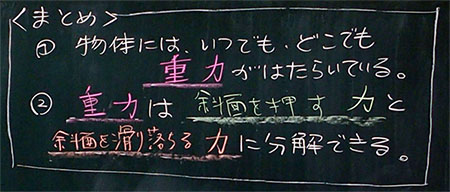 <まとめ>
① 物体には、いつでも、どこでも
重力がはたらいている。
② 重力は 斜面を押す 力と
斜面を滑り落ちる 力に分解できる。